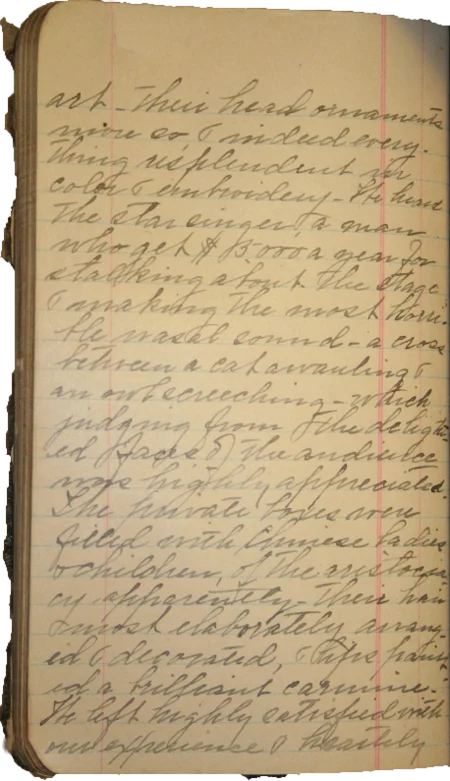 art - Their head ornaments
more so, & indeed every-
thing resplendent in
color & embroidery - We heard
the star singer, a man
who get $15000 a year for
stalking about the stage
& making the most horri-
ble nasal sound - a cross
between a cat awauling &
an owl screeching - which
judging from the delight-
ed faces of the audience
was highly appreciated.
The private boxes were
filled with Chinese ladies
& children, of the aristocra-
cy apparently - Their hair
most elaborately arrang-
ed & decorated, & lips paint-
ed a brilliant carmine.
We left highly satisfied with
our experience & heartily